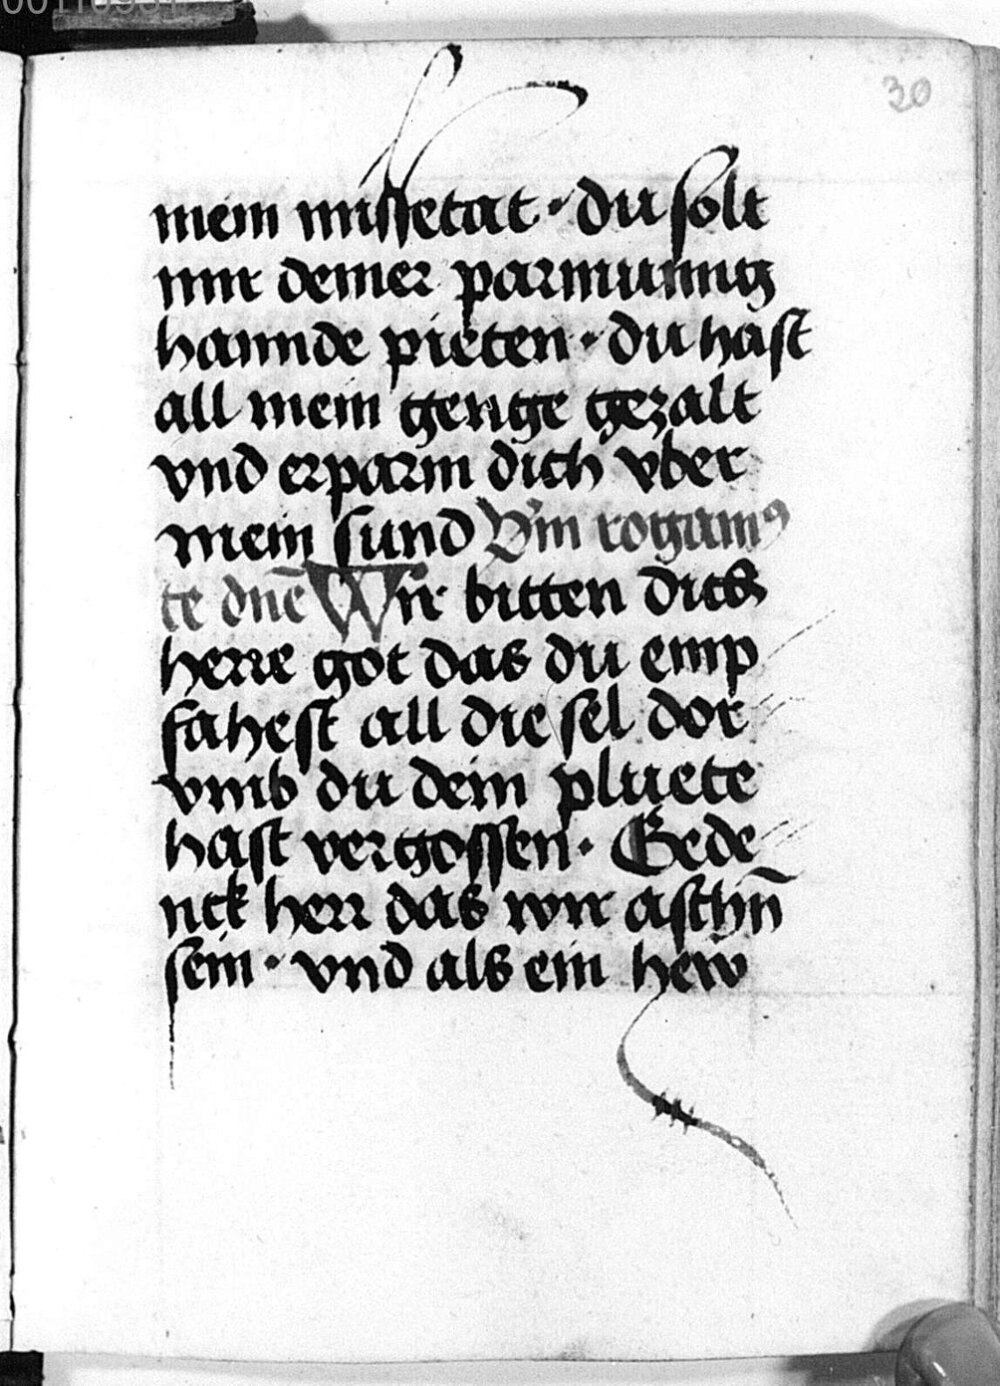 30
mein missetat · du solt
mir deiner parmunng
hannde pieten · du hast
all mein genge gezalt
vnd erparm dich vber
mein sund Vm rogamꝰ
te dn̄e Wir bitten dich
herre got das du emp
fahest all die sel dor
vmb du dein pluete
hast vergossen · Gede
nck herr das wir aschn̄
sein · vnd als ein hew